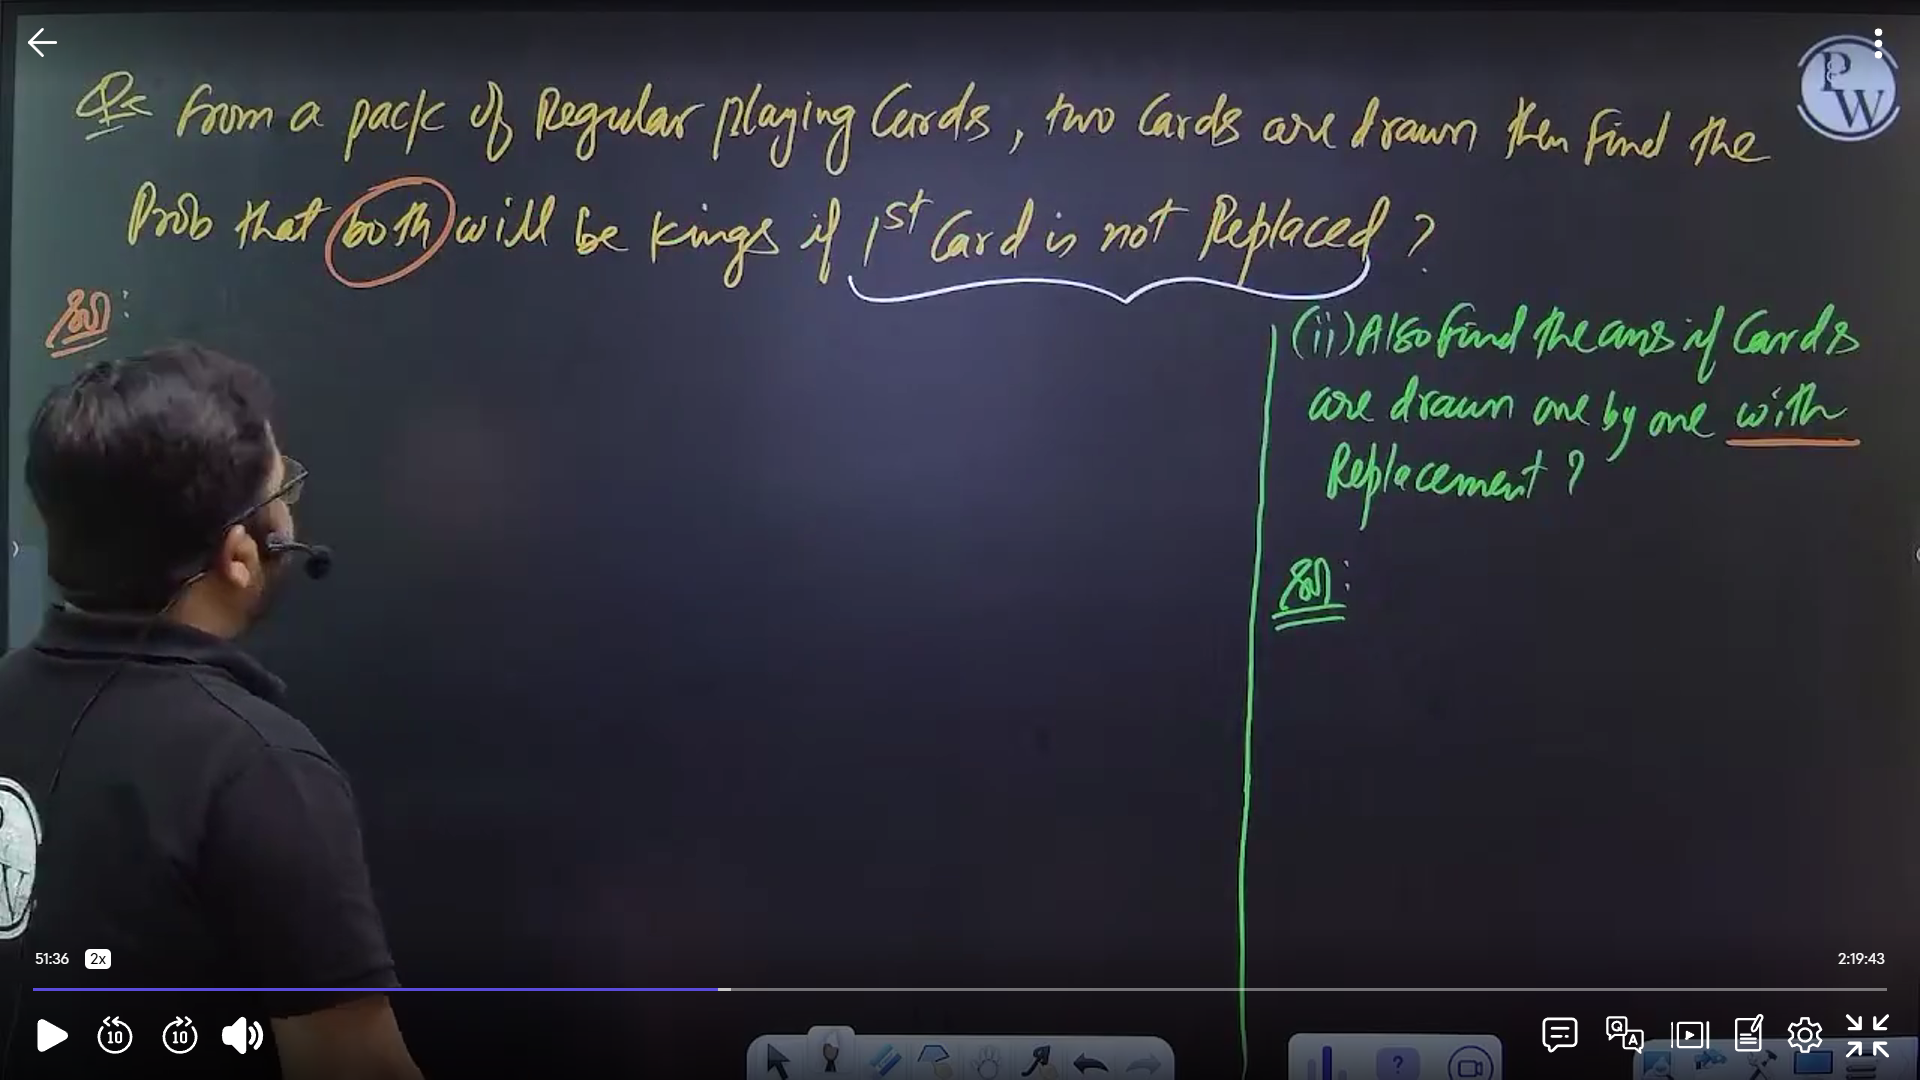 Qs From a pack of Regular Playing Cards, two Cards are drawn then find the
Prob that both will be kings if 1st Card is not Replaced ?
Sol:
(ii) Also find the ans if Cards
are drawn one by one with
Replacement ?
Sol:
PW
W
51:36 2x 2:19:43
10 10
QA
?